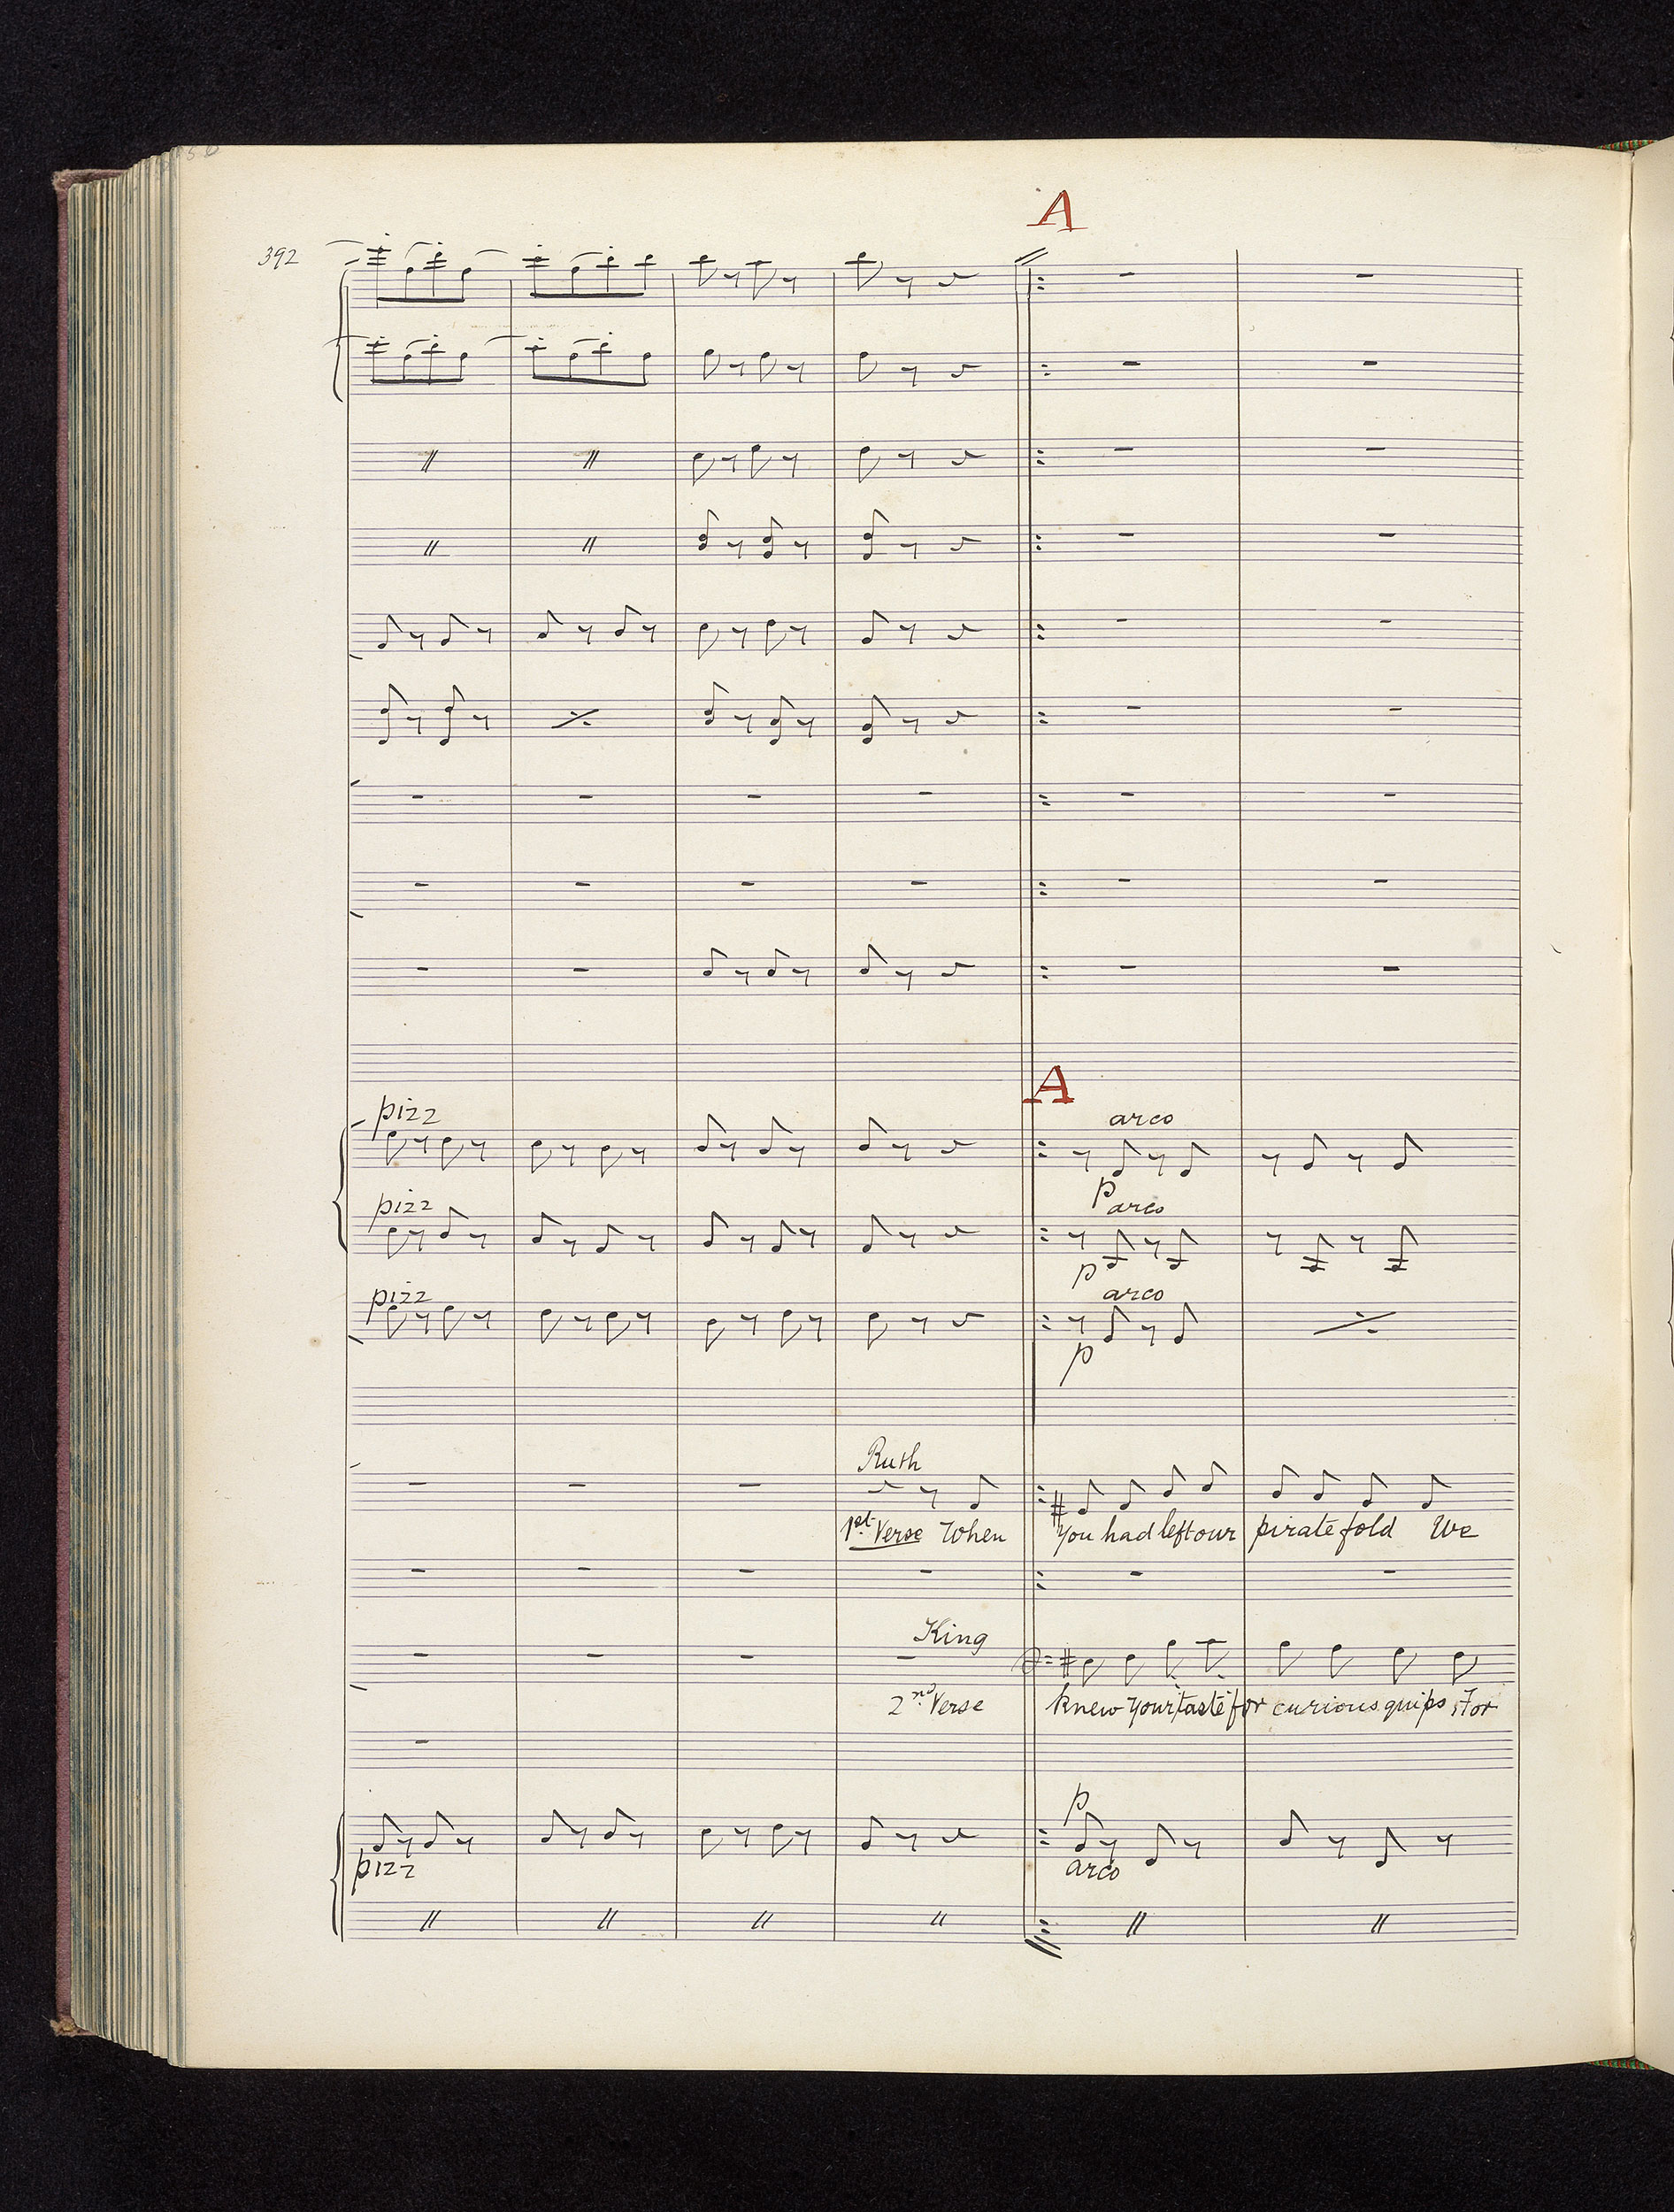 A
392
A
pizz
arco
p
pizz
arco
p
pizz
arco
p
Ruth
1st Verse When You had left our pirate fold We
King
2nd Verse knew your taste for curious quips, For
p
pizz
arco